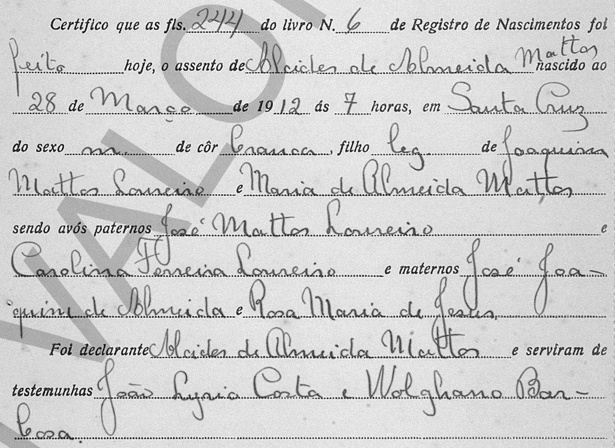 Certifico que as fls. 244 do livro N. 6 de Registro de Nascimentos foi
feito hoje, o assento de Alcides de Almeida Mattos nascido ao
28 de Março de 1912 ás 7 horas, em Santa Cruz
do sexo m. de côr branca, filho leg. de Joaquim
Mattos Loureiro e Maria de Almeida Mattos
sendo avós paternos José Mattos Loureiro e
Carolina Ferreira Loureiro e maternos José Joa-
quim de Almeida e Rosa Maria de Jesus.
Foi declarante Alcides de Almeida Mattos e serviram de
testemunhas João Lyria Costa e Wolghano Bar-
bosa.